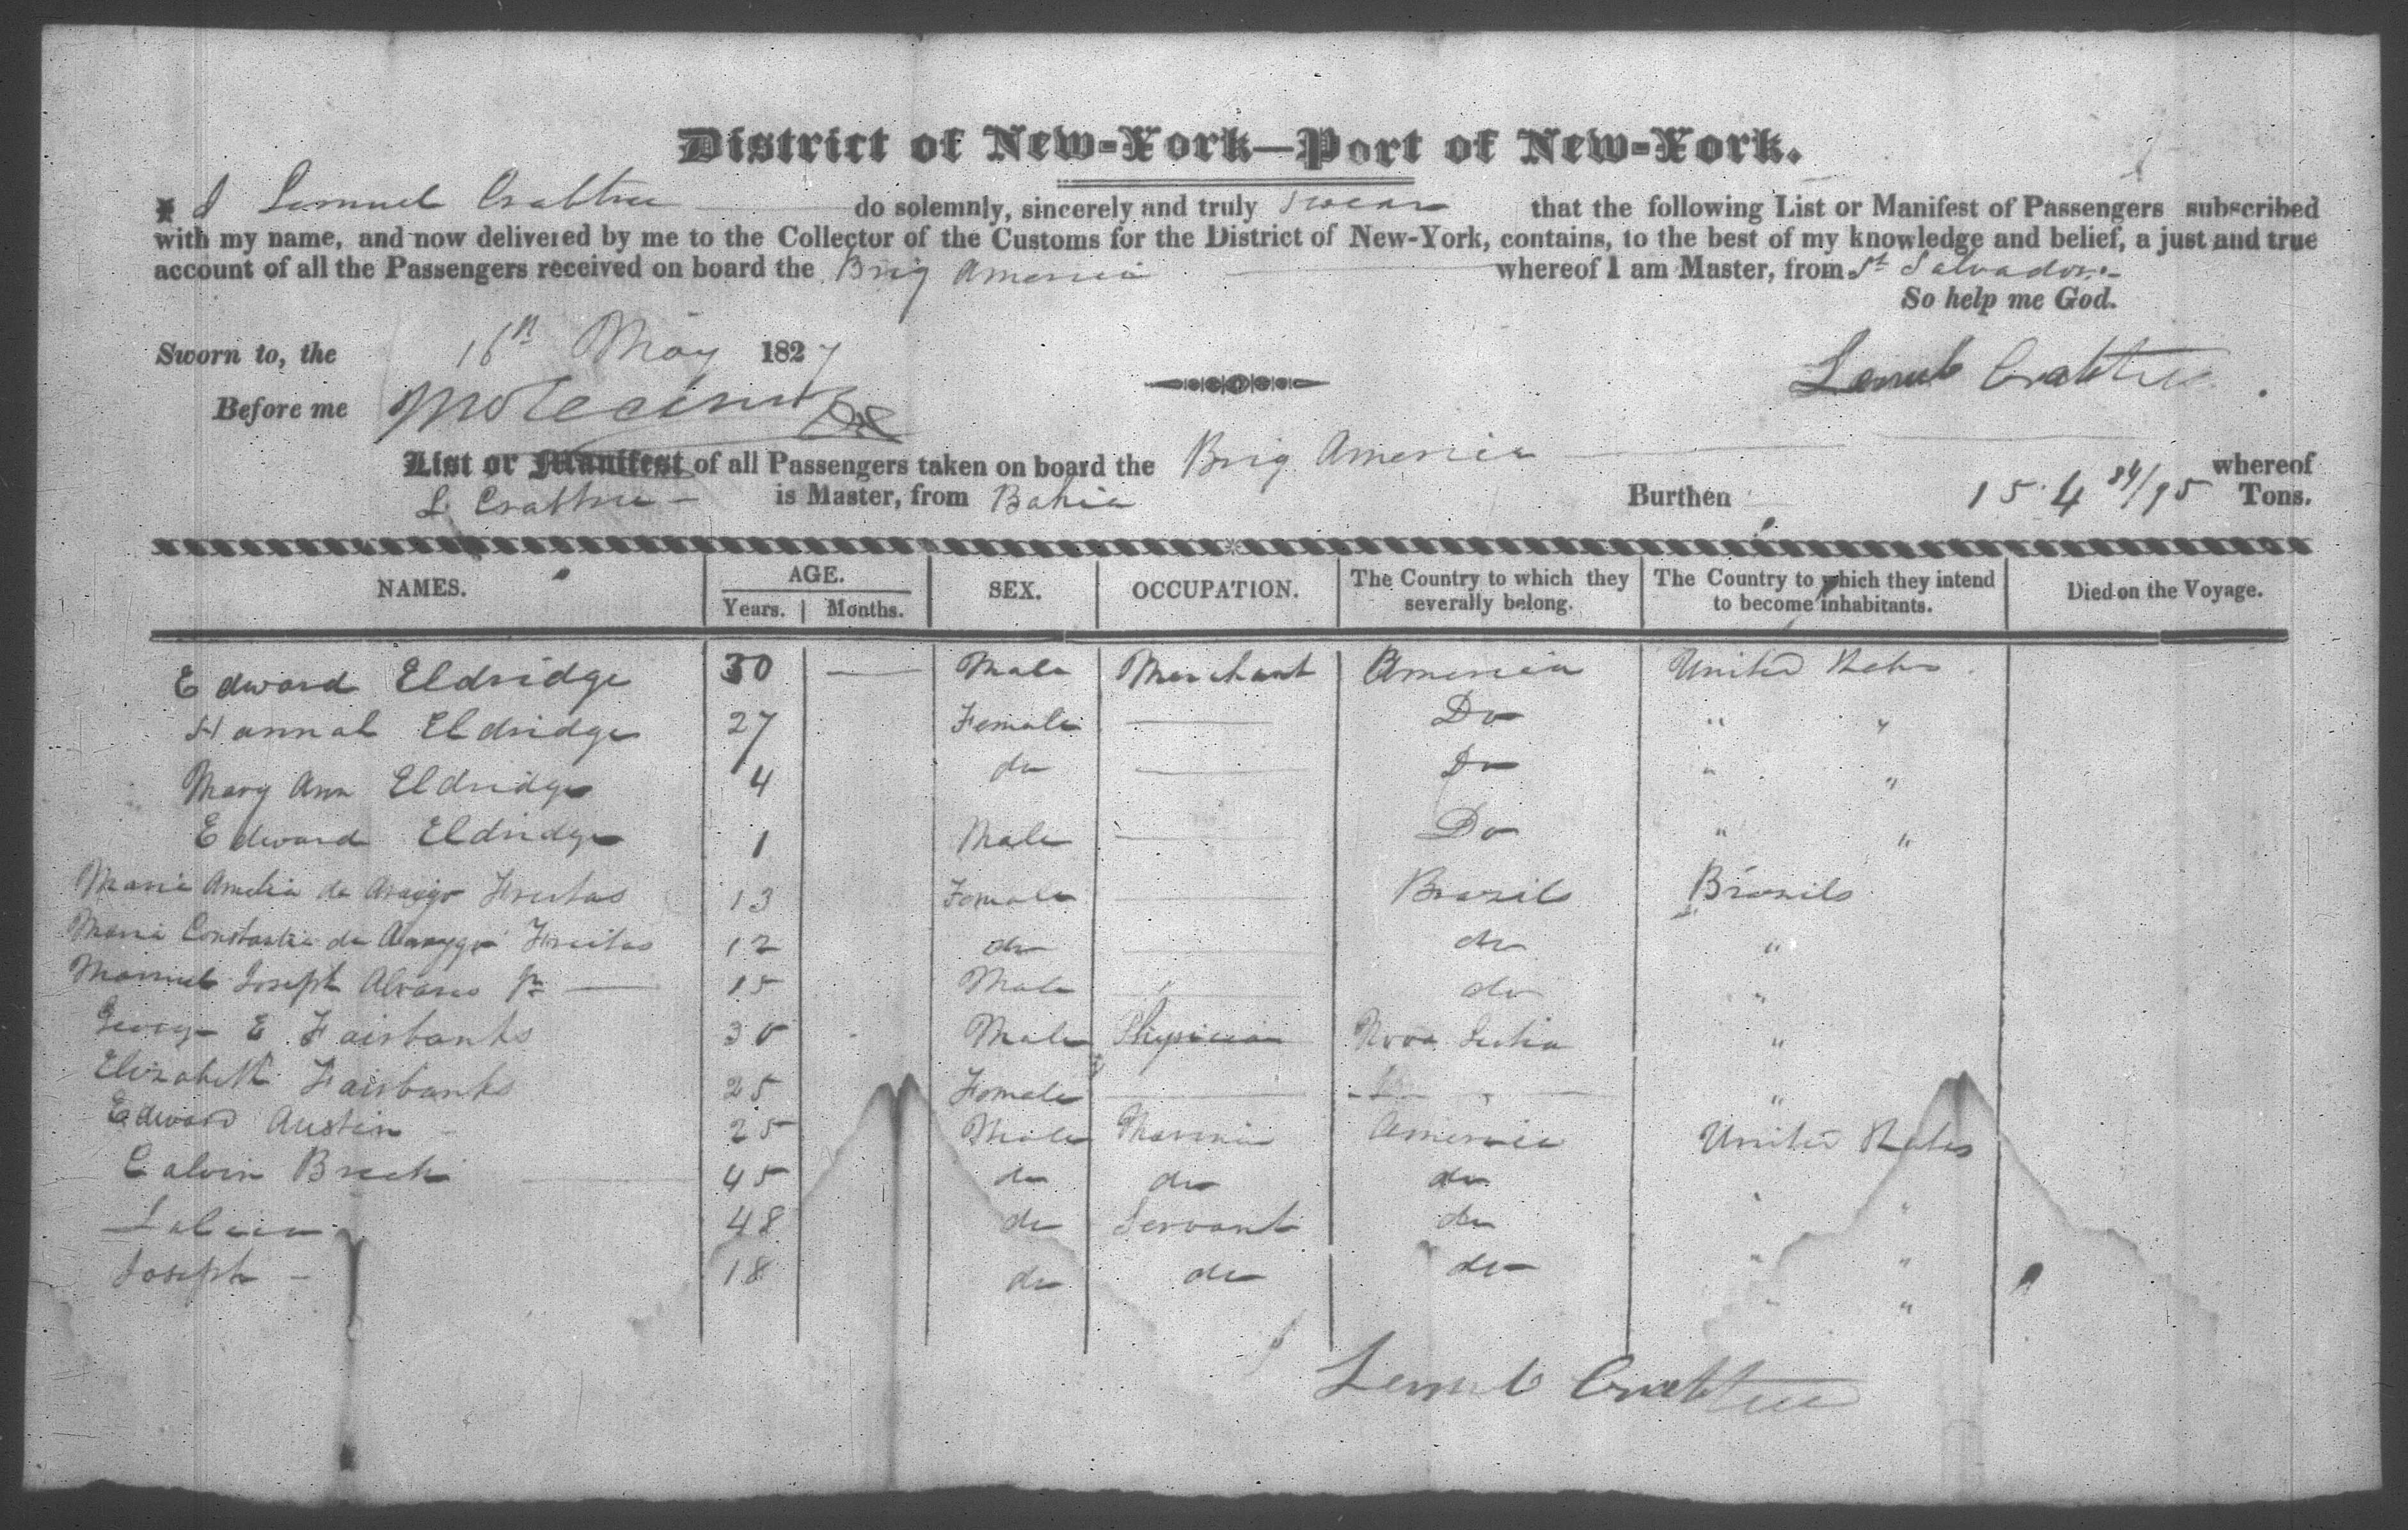 District of New-York—Port of New-York.
I Lemuel Crabtree do solemnly, sincerely and truly swear that the following List or Manifest of Passengers subscribed
with my name, and now delivered by me to the Collector of the Customs for the District of New-York, contains, to the best of my knowledge and belief, a just and true
account of all the Passengers received on board the Brig America whereof I am Master, from St Salvador
So help me God.
Sworn to, the 16th May 1827
Lemuel Crabtree
Before me
List or Manifest of all Passengers taken on board the Brig America whereof
L Crabtree is Master, from Bahia Burthen 154 84/95 Tons.
NAMES. AGE. SEX. OCCUPATION. The Country to which they severally belong. The Country to which they intend to become inhabitants. Died on the Voyage.
Years. Months.
Edward Eldridge 30 — Male Merchant America United States
Hannah Eldridge 27 Female — Do " "
Mary Ann Eldridge 4 do — Do " "
Edward Eldridge 1 Male — Do " "
Maria Amelia de Freitas 13 Female — Brazils Brazils
Maria de Freitas 12 do — do "
Manuel Joseph Alvares 15 Male — do "
George E Fairbanks 30 Male Physician Nova Scotia "
Elizabeth Fairbanks 25 Female — "
Edward Austin 25 Male America United States
Calvin 45 do do do " "
48 do Servant do " "
Joseph — 18 do do do " "
Lemuel Crabtree